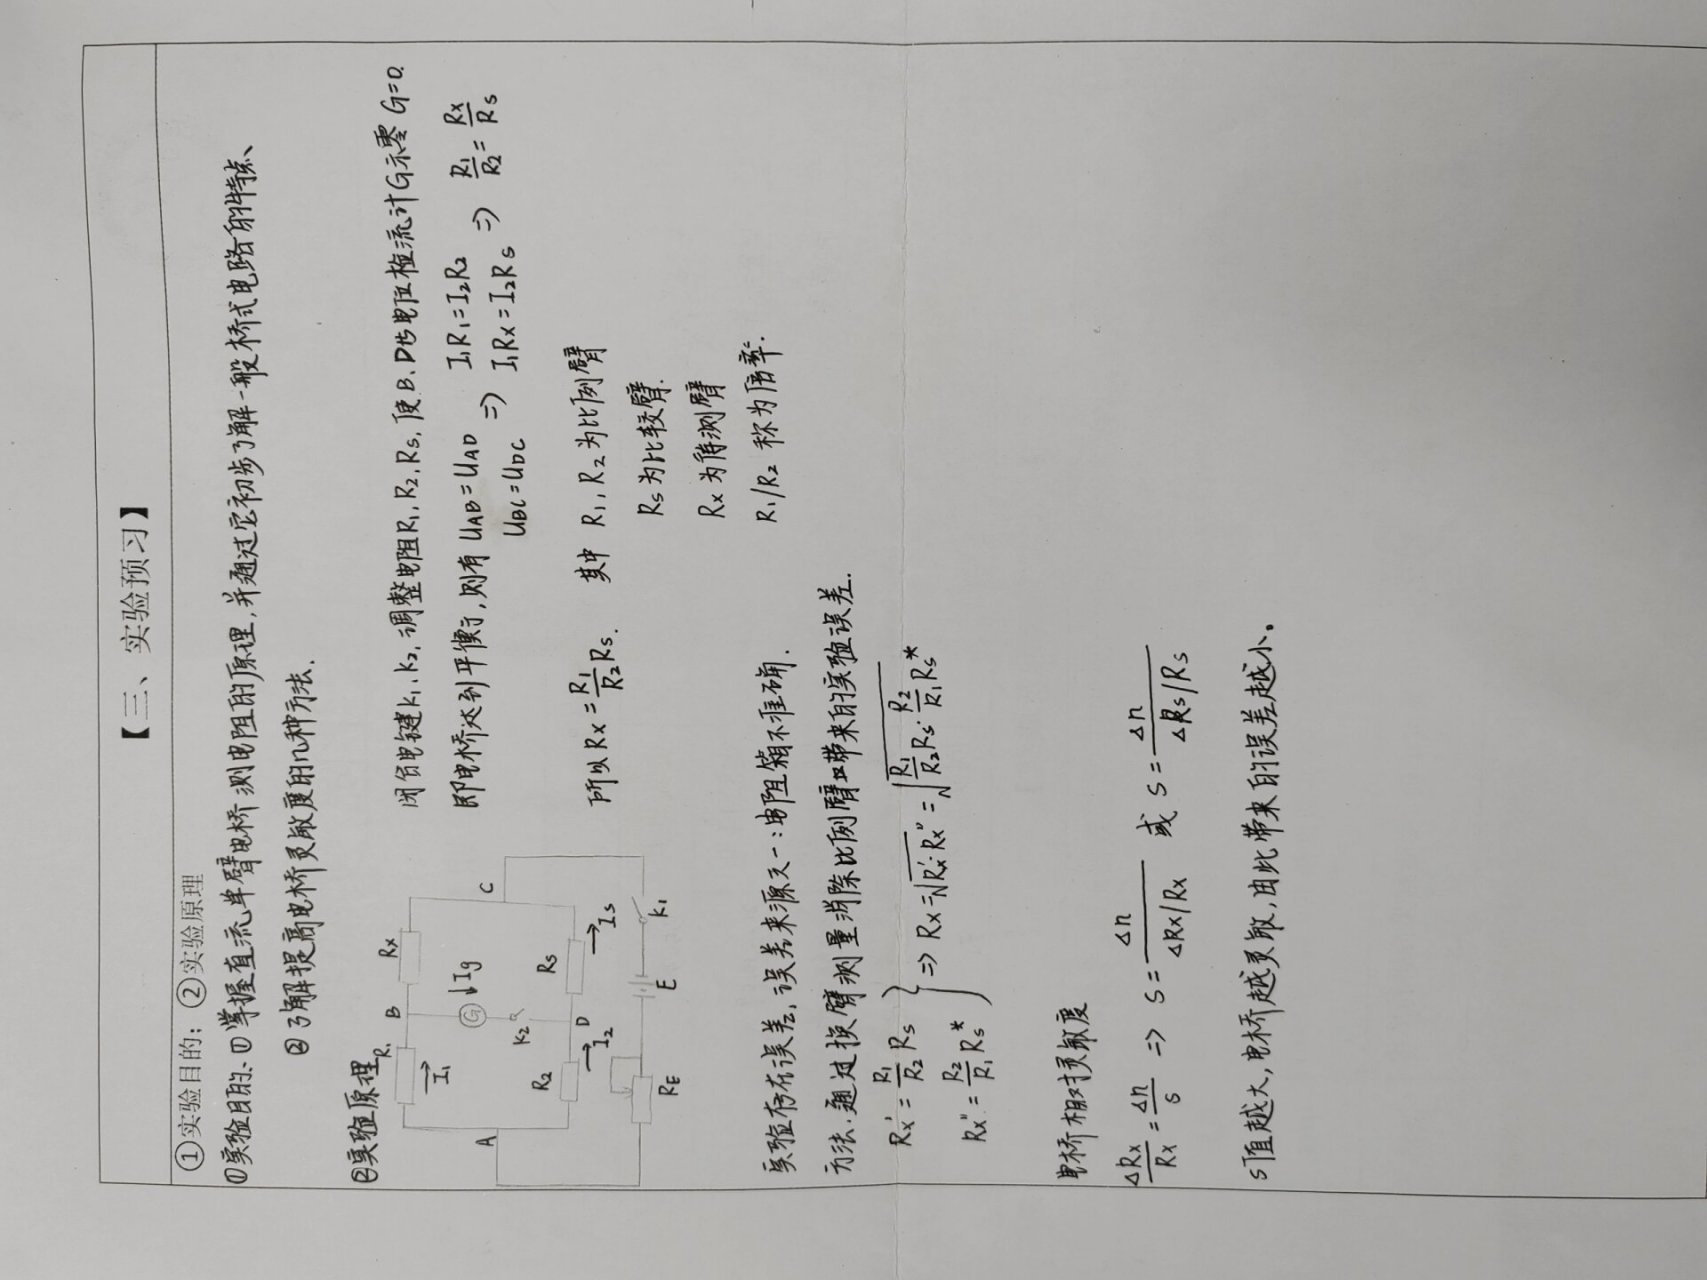 【三、实验预习】
①实验目的；②实验原理
①实验目的、①掌握直流单臂电桥测电阻的原理，并通过它初步了解一般桥式电路的特点、
②了解提高电桥灵敏度的几种方法.
②实验原理
R₁ B Rx
I₁ G ↓Ig
A C
K₂
R₂ D Rs
I₂ Is
RE E K₁
闭合电键K₁、K₂,调整电阻R₁,R₂,Rs,使B、D电位检流计G示零 G=0.
即电桥达到平衡了,则有 UAB=UAD ⇒ I₁R₁=I₂R₂ ⇒ R₁/R₂=Rx/Rs
UBC=UDC I₁Rx=I₂Rs
所以 Rx=R₁/R₂ Rs. 其中 R₁,R₂为比例臂
Rs为比较臂.
Rx为待测臂
R₁/R₂ 称为倍率.
实验存在误差,误差来源之一:电阻箱不准确.
方法.通过换臂测量消除比例臂带来的实验误差.
Rx′=R₁/R₂ Rs
Rx″=R₂/R₁ Rs* } ⇒ Rx=√(Rx′·Rx″)=√(R₁/R₂ Rs·R₂/R₁ Rs*)
电桥相对灵敏度
ΔRx/Rx=Δn/S ⇒ S=Δn/(ΔRx/Rx) 或 S=Δn/(ΔRs/Rs)
S值越大,电桥越灵敏,由此带来的误差越小。